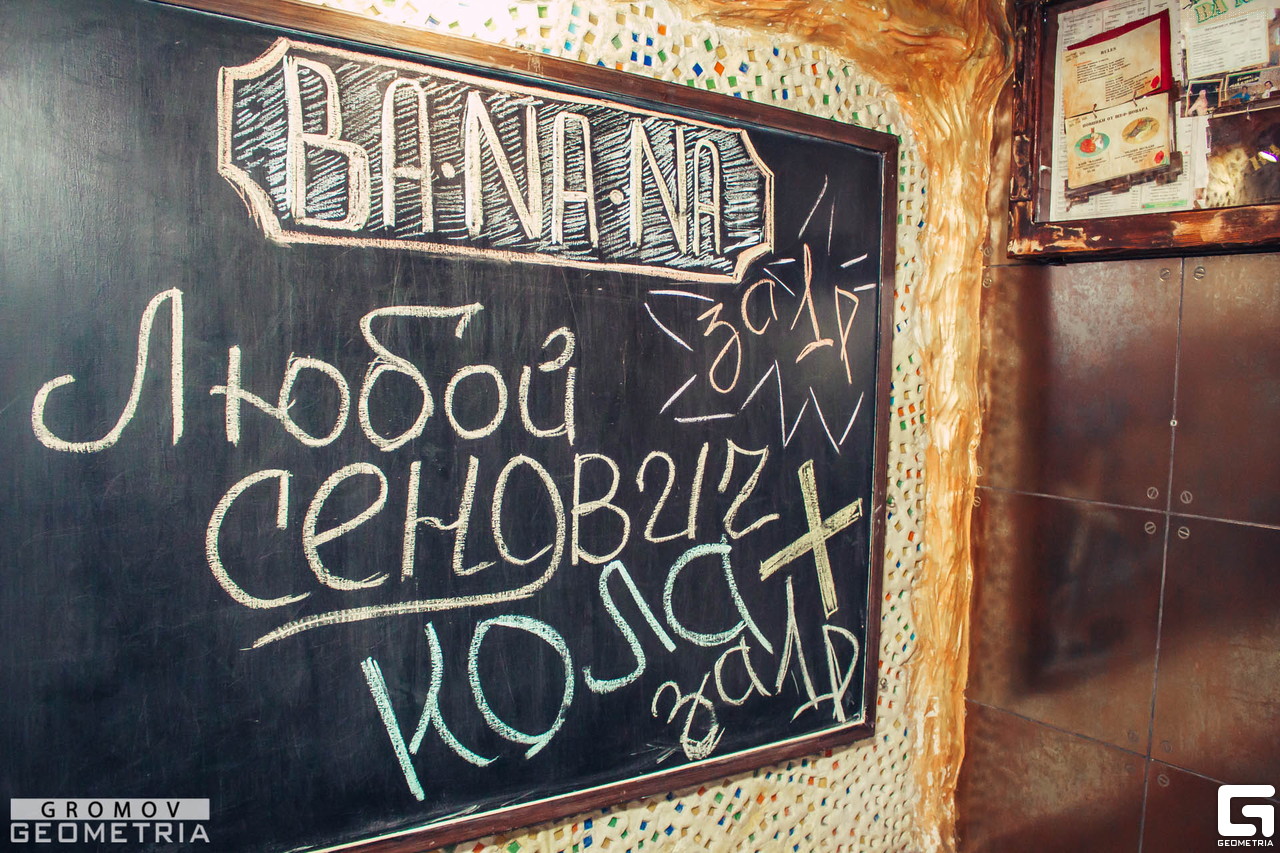 BA·NA·NA
за 1р
Любой
сенович +
кола
за 1р
GROMOV
GEOMETRIA
GEOMETRIA